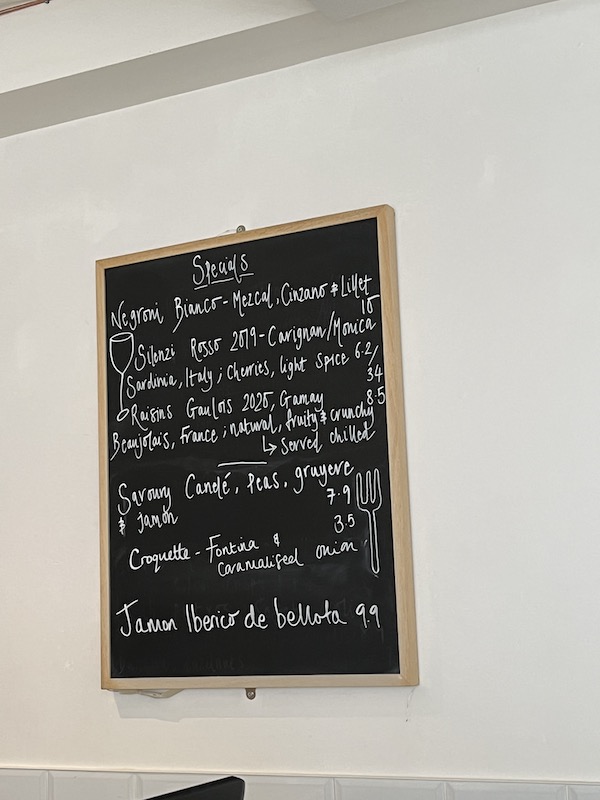 Specials
Negroni Bianco - Mezcal, Cinzano & Lillet
10
Silenzi Rosso 2019 - Carignan/Monica
Sardinia, Italy ; cherries, light spice 6.2/
34
Raisins Gaulois 2020, Gamay 8.5
Beaujolais, France ; natural, fruity & crunchy
↳ served chilled
Savoury Canelé, Peas, gruyere
& Jamon 7.9
3.5
Croquette - Fontina &
Caramalised onion
Jamon Iberico de bellota 9.9